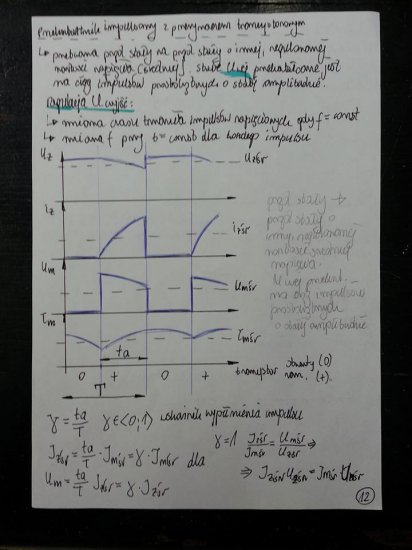 Przekształtnik impulsowy z przerywaczem tranzystorowym
↳ przetwarza prąd stały na prąd stały o innej, regulowanej
wartości napięcia (średniej). stałe U wej przekształcane jest
na ciąg impulsów prostokątnych o stałej amplitudzie.
Regulacja U wyjść:
↳ zmiana czasu trwania impulsów napięciowych gdy f = const
↳ zmiana f przy t = const dla każdego impulsu
Uz
Uzśr
iz
izśr
Um
Umśr
Im
Imśr
ta
0 + 0 +
T
tranzystor
otwarty (0)
zam. (+)
prąd stały →
prąd stały o
innej, regulowanej
wartości średniej
napięcia.
U wej przekszt.
na ciąg impulsów
prostokątnych
o stałej amplitudzie
γ = ta/T γ∈<0;1) wskaźnik wypełnienia impulsu
Izśr = ta/T · Imśr = γ · Imśr dla
γ=1 Izśr/Imśr = Umśr/Uzśr ⇒
Um = ta/T Izśr = γ · Izśr
⇒ Izśr Uzśr = Imśr Umśr
12